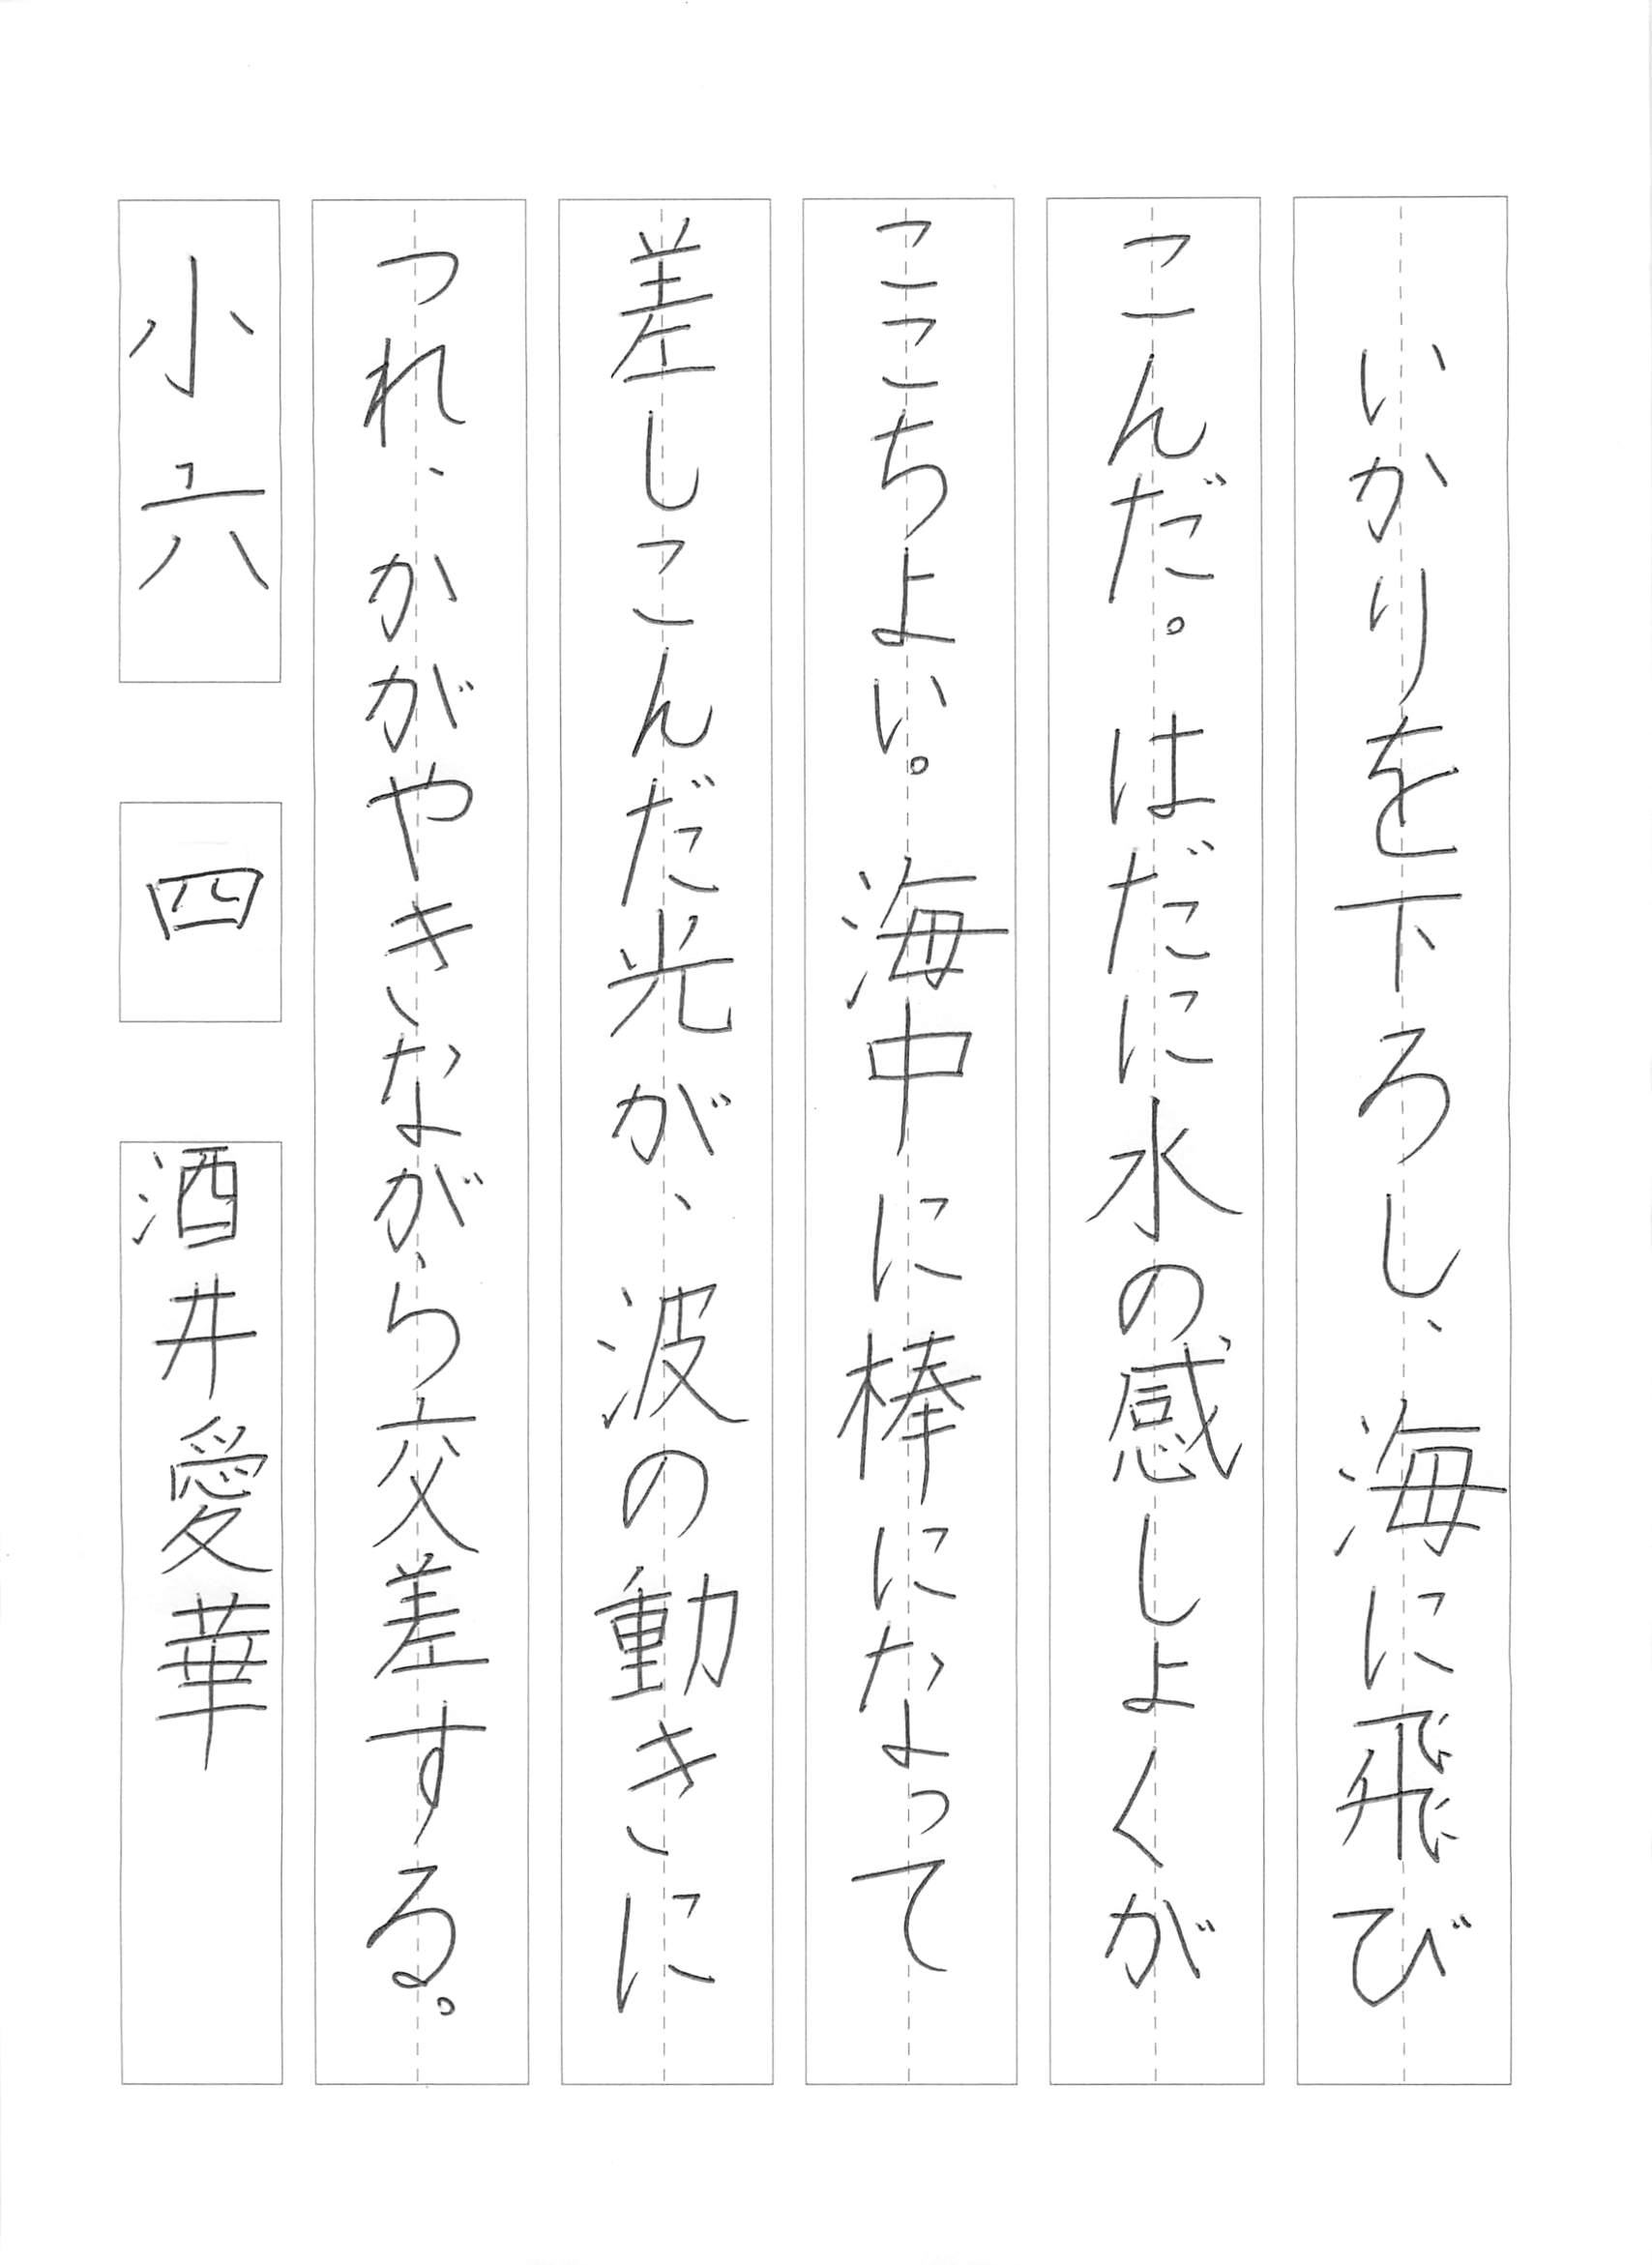 いかりを下ろし、海に飛び
こんだ。はだに水の感しよくが
ここちよい。海中に棒になって
差しこんだ光が、波の動きに
つれ、かがやきながら交差する。
小六 四 酒井愛華